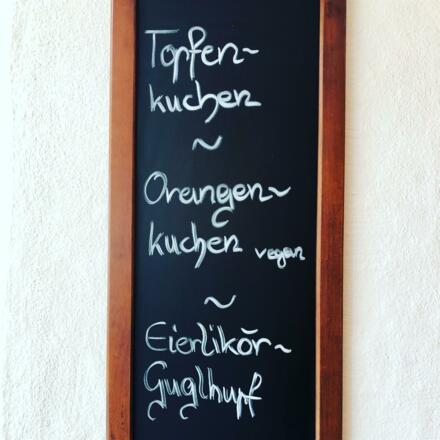 Topfen~
kuchen
~
Orangen~
kuchen vegan
~
Eierlikör~
Guglhupf